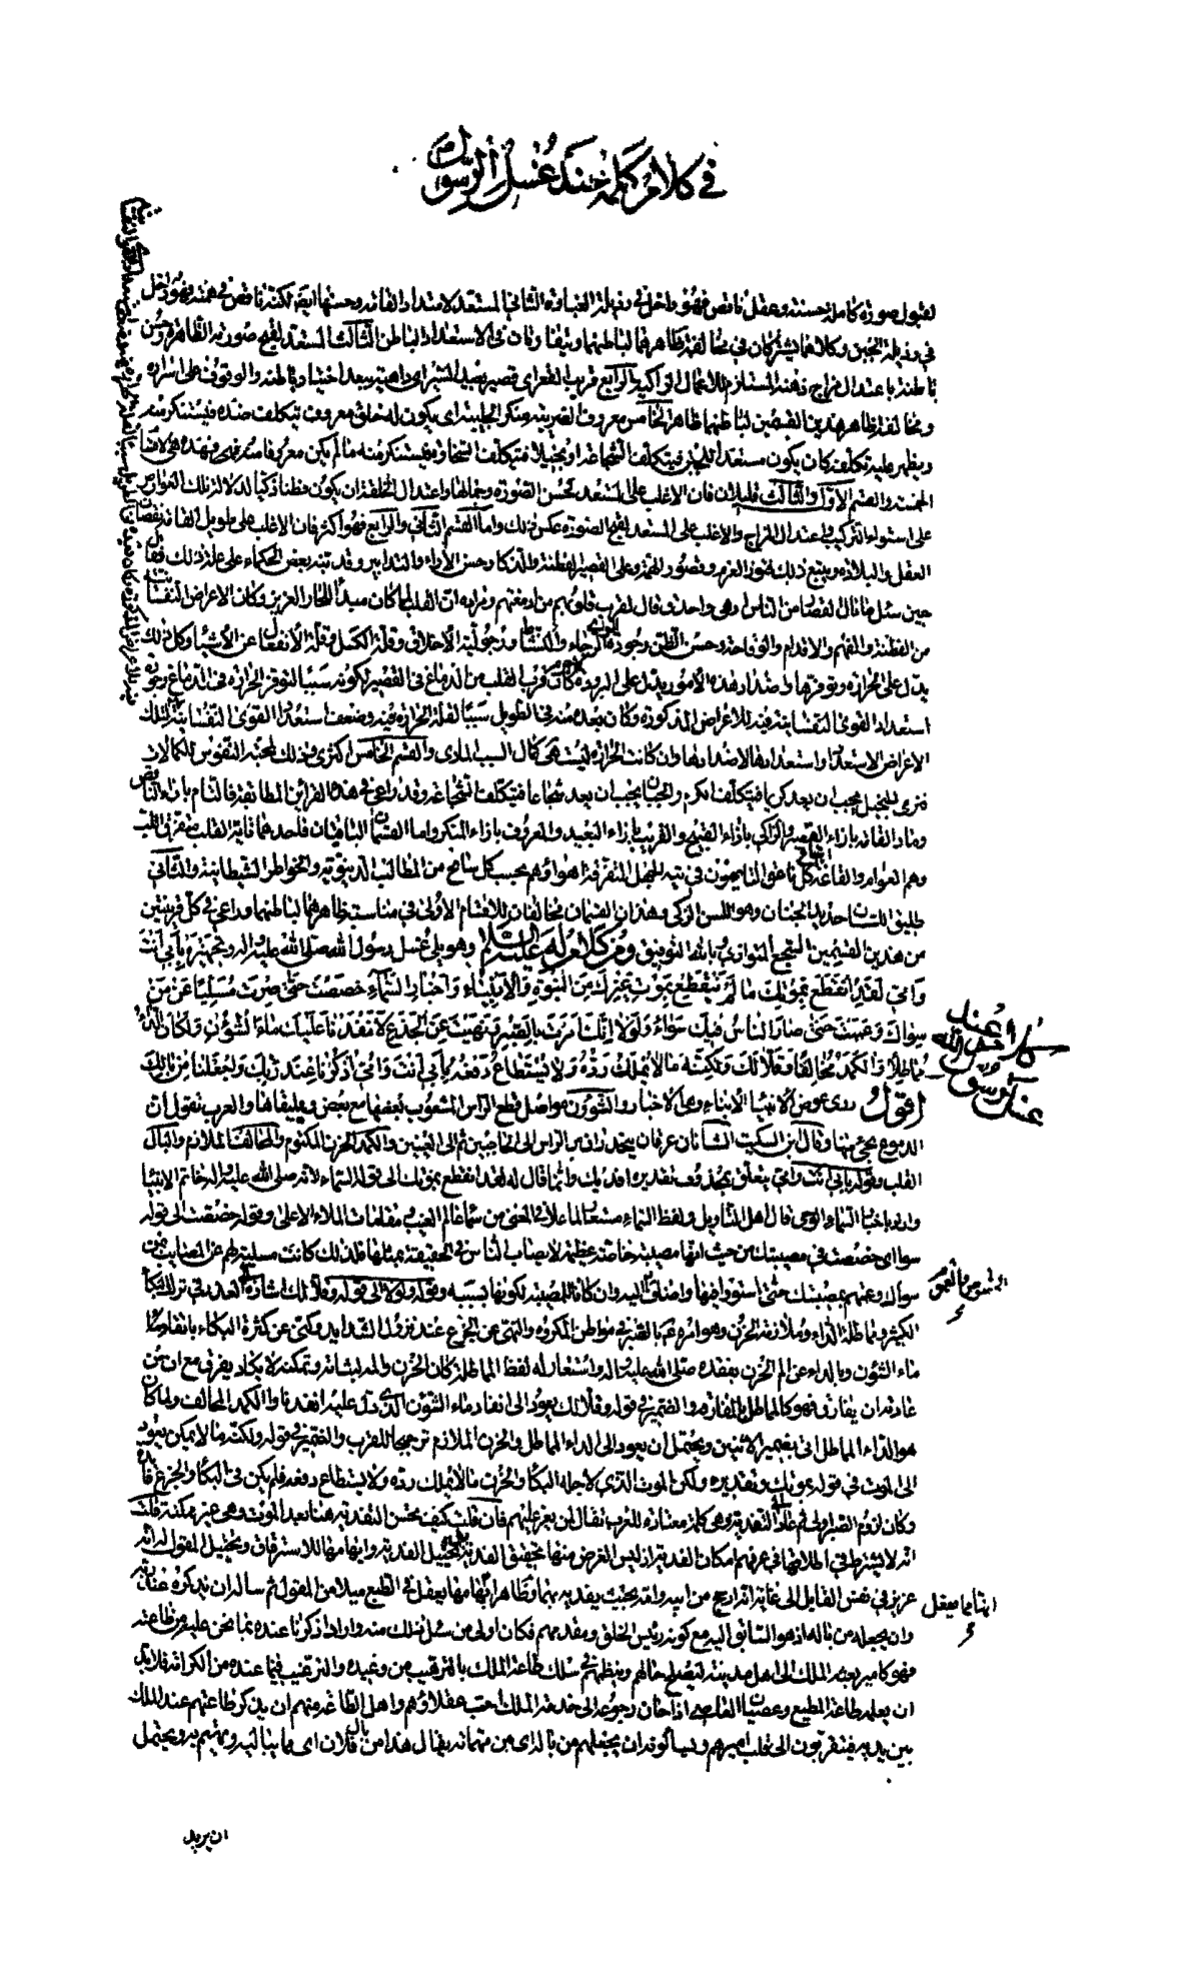 في كلام كلمه عند غسل الرسول
لقبول صورة كاملة حسنة وعقل ناقص فهو داخل في رذيلة الغباوة الثاني المستعد لامتداد القامة وحسنها ايضا لكنه ناقص في همته فهو داخل
في رذيلة الجبن وكلاهما يشتركان في مخالفة ظاهرهما لباطنهما ويتفاوتان في الاستعداد الباطن الثالث المستعد لقبح صورته الظاهرة وحسن
باطنه باعتدال مزاج ذهنه المستلزم للاعمال الزاكية والرابع قريب القعر اي قصير بعيد السبر اي داهية يبعد اختبار باطنه والوقوف على اسراره
ومخالفة ظاهر هذين القسمين لباطنهما ظاهر الخامس معروف الضريبة منكر الجليبة اي يكون له خلق معروف يتكلف ضده فيستنكر منه
ويظهر عليه تكلفه كان يكون مستعدا للجبن فيتكلف الشجاعة او بخيلا فيتكلف السخاوة فيستنكر منه ما لم يكن معروفا منه فهذه هي الاقسام
الخمسة والقسم الاول والثالث قليلان فان الاغلب على المستعد لحسن الصورة وجمالها واعتدال الخلقة ان يكون فطنا ذكيا لدلالة تلك العوارض
على استواء التركيب واعتدال المزاج والاغلب على المستعد لقبح الصورة عكس ذلك واما القسم الثاني والرابع فهو اكثر فان الاغلب على طويل القامة نقصان
العقل والبلادة ويتبع ذلك فتور العزم وقصور الهمة وعلى القصير الفطنة والذكاء وحسن الآراء والتدابير وقد تنبه بعض الحكماء على علة ذلك فقال
حين سئل ما بال القصار من الناس ادهى واحذق قال لقرب قلوبهم من ادمغتهم ومراده ان القلب لما كان مبدأ للحار الغريزي وكان الاعراض النفسانية
من الفطنة والفهم والاقدام والوقاحة وحسن الظن وجودة الرأي والرجاء والنشاط ورجولية الاخلاق وقلة الكسل وقلة الانفعال عن الاشياء وكان ذلك
يدل على الحرارة وتوفرها واضداد هذه الامور يدل على البرودة لاجرم كان قرب القلب من الدماغ في القصير لكونه سببا لتوفر الحرارة في الدماغ وقوة
استعداد القوى النفسانية فيه للاعراض المذكورة وكان بعده منه في الطويل سببا لقلة الحرارة فيه وضعف استعداد القوى النفسانية لتلك
الاعراض الاستعداد واستعدادها لاضدادها وان كانت الحرارة ليست هي كمال السبب المادي والقسم الخامس اكثري وذلك لمحبة النفوس للكمالات
فترى البخيل يحب ان يعد كريما فيتكلف الكرم والجبان يحب ان يعد شجاعا فيتكلف الشجاعة وقد راعى في هذه القرائن المطابقة فالتام بازاء الناقص
وماد القامة بازاء القصير والزاكي بازاء القبيح والقريب بازاء البعيد والمعروف بازاء المنكر واما القسمان الباقيان فاحدهما تائه القلب متفرق اللب
وهم العوام والقاعدة اتباع كل ناعق التائهون في تيه الجهل المتفرقة اهواؤهم بحسب كل سانح من المطالب الدنيوية والخواطر الشيطانية والثاني
طليق اللسان حديد الجنان وهو اللسن الزكي وهذان القسمان مخالفان للاقسام الاولى في مناسبة ظاهرهما لباطنهما وراعى في كل قرينتين
من هذين القسمين السجع المتوازي وبالله التوفيق ومن كلام له عليه السلام وهو يلي غسل رسول الله صلى الله عليه واله وتجهيزه بابي انت
وامي لقد انقطع بموتك ما لم ينقطع بموت غيرك من النبوة والانباء واخبار السماء خصصت حتى صرت مسليا عمن
سواك وعممت حتى صار الناس فيك سواء ولولا انك امرت بالصبر ونهيت عن الجزع لانفدنا عليك ماء الشؤون ولكان الداء
مماطلا والكمد محالفا وقلا لك ولكنه ما لا يملك رده ولا يستطاع دفعه بابي انت وامي اذكرنا عند ربك واجعلنا من بالك
اقول روي عوض الانبياء الانباء وهي الاخبار والشؤون مواصل قطع الرأس المشعوب بعضها مع بعض وملتقاها والعرب تقول ان
الدموع تجيء منها وقال ابن السكيت الشانان عرقان ينحدران من الرأس الى الحاجبين ثم الى العينين والكمد الحزن المكتوم والمحالفة الملازم والبال
القلب وقوله بابي انت وامي يتعلق بمحذوف تقديره افديك وانما قال له لقد انقطع بموتك الى قوله السماء لانه صلى الله عليه واله خاتم الانبياء
واراد باخبار السماء الوحي قال اهل التأويل ولفظ السماء مستعار لما علا في المعنى من سماء عالم الغيب ومقامات الملأ الاعلى وقوله خصصت الى قوله
سواك اي خصصت في مصيبتك من حيث انها مصيبة خاصة عظيمة لا يصاب الناس في الحقيقة بمثلها فلذلك كانت مسلية لهم عن المصايب بمن
سواك وعمتهم بمصيبتك حتى استووا فيها واضاف اليه وان كانا للمصيبة لكونها بسببه وقوله ولولا الى قوله وقلا لك اشارة الى العذر في ترك البكاء
الكثير ومماطلة الداء وملازمة الحزن وهو امره عم بالصبر في مواطن المكروه والنهي عن الجزع عند نزول الشدايد وكنى عن كثرة البكاء بانفاد
ماء الشؤون وبالداء عن الم الحزن بفقده صلى الله عليه واله واستعار له لفظ المماطلة كان الحزن والمه لثباته وتمكنه لا يكاد يفارق مع ان من
عادته ان يفارق فهو كالمماطل بالمفارقة والضمير في قوله وقلا لك يعود الى انفاد ماء الشؤون الذي دل عليه انفدنا والكمد المحالف ولما كان
هو الداء المماطل اتى بضمير الاثنين ويحتمل ان يعود الى الداء المماطل والحزن الملازم ترجيحا للقرب والضمير في قوله ولكنه ما لا يمكن يعود
الى الموت في قوله بموتك وتقديره ولكن الموت الذي لاجله البكاء والحزن ما لا يملك رده ولا يستطاع دفعه فلم يكن في البكاء والجزع فائدة
وكان لزوم الصبر اولى ثم عاد الى التفدية وهي كلمة معتادة للعرب تقال لمن يعز عليهم فان قلت كيف تحسن التفدية هنا بعد الموت وهي غير ممكنة قلت
انه لا يشترط في اطلاقها في عرفهم امكان الفدية اذ ليس الغرض منها تحقيق الفدية بل تخييل الفدية وايهامها للاسترقاق وتخييل المقول له انه
عزيز في نفس القايل الى غاية انه ارجح من ابيه وامه بحيث يفديه بهما وظاهر ايهامها يفعل في الطبع ميلا من المقول ثم سأله ان يذكره عند ربه
وان يجعله من باله اذ هو السابق اليه مع كونه رئيس الخلق ومقدمهم فكان اولى من سئل ذلك منه واراد اذكرنا عنده بما نحن عليه من طاعته
فهو كامير بعثه الملك الى اهل مدينة ليصلح حالهم وينظمهم في سلك طاعة الملك بالترهيب من وعيده والترغيب فيما عنده من الكرامة فلابد
ان يعلمه طاعة المطيع وعصيان العاصي اذا حان رجوعه الى خدمة الملك احب عقلاؤهم واهل الطاعة منهم ان يذكر طاعتهم عند الملك
بين يديه فيتقربون الى قلب اميرهم ويسألونه ان يجعلهم من باله اي من مهماته يقال هذا من بال فلان اي مما يباليه ويهتم به ويحتمل
كلامه عند
غسل رسول الله
ان يريد